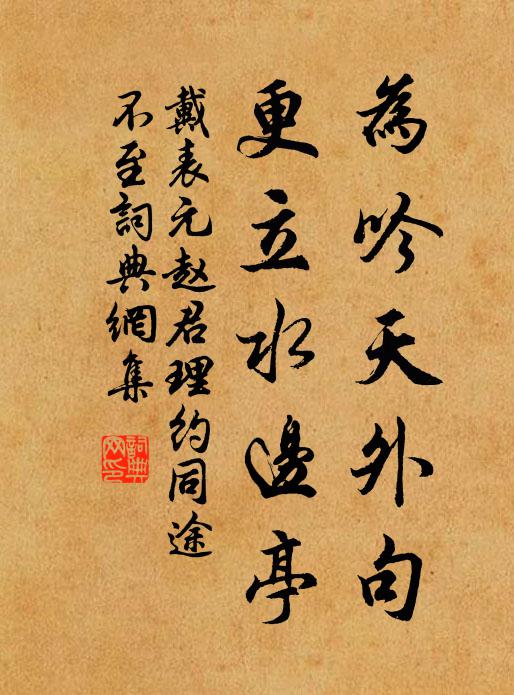 為吟天外句
更立水邊亭
戴表元赵君理约同途
不至詞典網集
詞典
网印